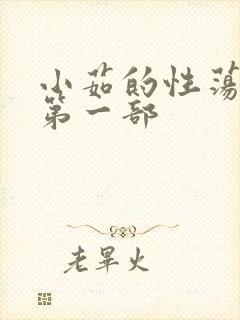 小茹的性荡
第一部
老畢火